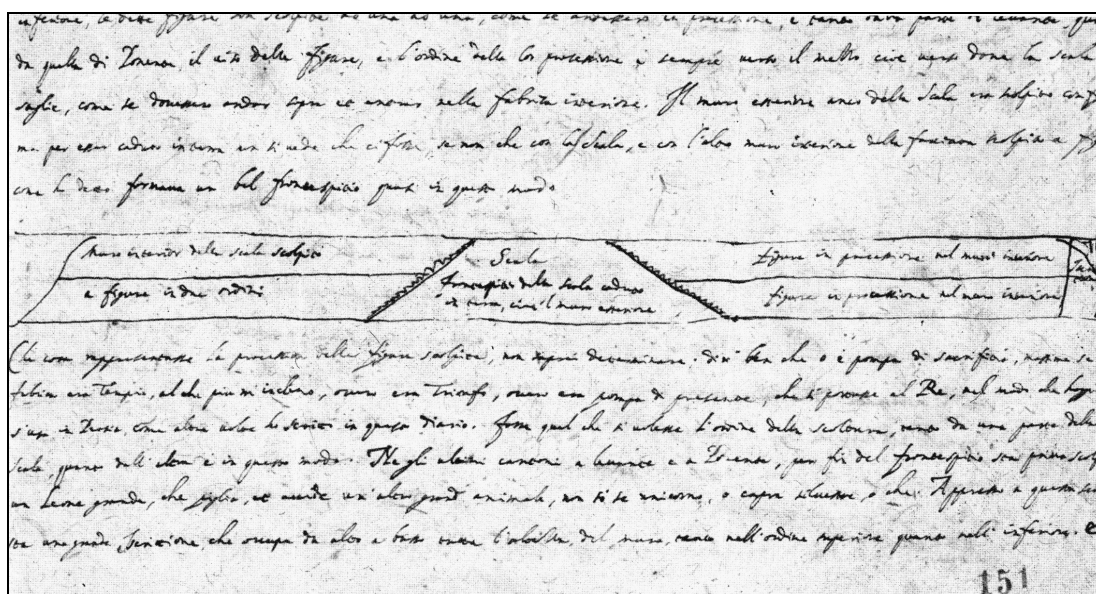 inferiore, le dette figure son scolpite ad una ad una, come se andassero in processione, e tanto dalla parte di levante, qu
da quella di Ponente, il viso delle figure, e l'ordine della lor processione è sempre verso il mezzo cioè verso dove la scala
saglie, come se dovessero andar sopra et entrar nella fabrica interiore. Il muro esteriore anco della scala era scolpito con f
ma per esser caduto in terra non si vede che ci fosse, se non che con la scala, e con l'altro muro interiore della scolpito a fig
come ho detto formava un bel frontespicio quasi in questo modo
muro interior della scala scolpito
a figure in due ordini
Scala
frontespitio della scala caduto
in terra, cioè il muro esteriore
figure in processione nel muro interiore
figure in processione nel muro interiore
Che cosa rappresentasse la processione delle figure scolpite, non saprei determinare. dirò ben che o è pompa di sacrificio, massime se
fabrica era Tempio, al che più m'inchino, overo era Trionfo, overo era pompa di presente, che si portasse al Re, nel modo che hoggi
s'usa in Persia, come altre volte ho scritto in questo diario. Fosse quel che si volesse l'ordine della scoltura, tanto da una parte della
scala, quanto dall'altra è in questo modo. Negli ultimi cantoni a levante e a Ponente, per fin del frontespicio sta prima scolp
un Leone grande, che piglia, et uccide un altro grand' animale, non so se unicorno, o capra silvestre, o che. Appresso a questo se
sta una grande Inscrittione, che occupa da alto a basso tutta l'altezza del muro, tanto nell'ordine superiore quanto nell'inferiore. e
151